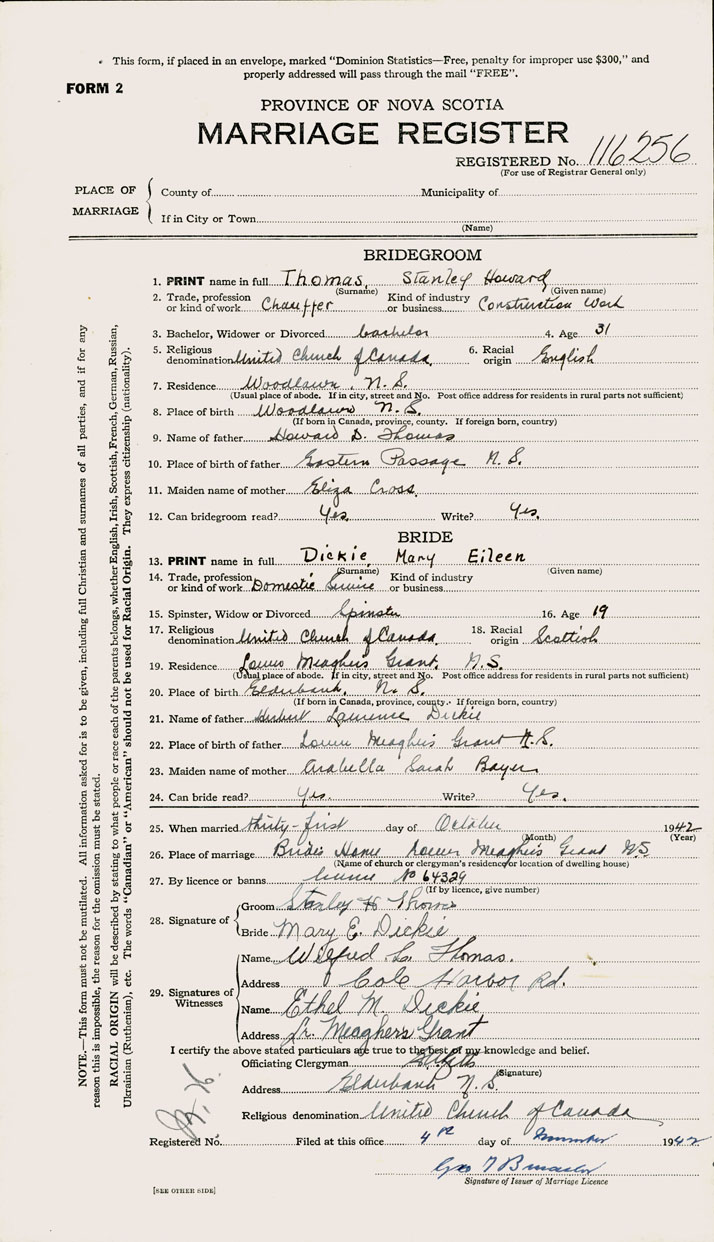 This form, if placed in an envelope, marked "Dominion Statistics—Free, penalty for improper use $300," and
properly addressed will pass through the mail "FREE".
FORM 2
PROVINCE OF NOVA SCOTIA
MARRIAGE REGISTER
REGISTERED No. 116256
(For use of Registrar General only)
PLACE OF MARRIAGE
County of Municipality of
If in City or Town
(Name)
BRIDEGROOM
1. PRINT name in full Thomas, Stanley Howard
(Surname) (Given name)
2. Trade, profession or kind of work Chauffer Kind of industry or business Construction Work
3. Bachelor, Widower or Divorced bachelor 4. Age 31
5. Religious denomination United Church of Canada 6. Racial origin English
7. Residence Woodlawn, N.S.
(Usual place of abode. If in city, street and No. Post office address for residents in rural parts not sufficient)
8. Place of birth Woodlawn N.S.
(If born in Canada, province, county. If foreign born, country)
9. Name of father Howard D. Thomas
10. Place of birth of father Eastern Passage N.S.
11. Maiden name of mother Eliza Cross
12. Can bridegroom read? Yes. Write? Yes.
BRIDE
13. PRINT name in full Dickie, Mary Eileen
(Surname) (Given name)
14. Trade, profession or kind of work Domestic Service Kind of industry or business
15. Spinster, Widow or Divorced Spinster 16. Age 19
17. Religious denomination United Church of Canada 18. Racial origin Scottish
19. Residence Lower Meaghers Grant, N.S.
(Usual place of abode. If in city, street and No. Post office address for residents in rural parts not sufficient)
20. Place of birth Elderbank, N.S.
(If born in Canada, province, county. If foreign born, country)
21. Name of father Herbert Laurence Dickie
22. Place of birth of father Lower Meaghers Grant N.S.
23. Maiden name of mother Arabella Sarah Bayer
24. Can bride read? Yes. Write? Yes.
25. When married thirty-first day of October 1942
(Month) (Year)
26. Place of marriage Brides Home Lower Meaghers Grant N.S.
(Name of church or clergyman's residence or location of dwelling house)
27. By licence or banns licence No 64329
(If by licence, give number)
28. Signature of
Groom Stanley H Thomas
Bride Mary E. Dickie
29. Signatures of Witnesses
Name Wilfred L. Thomas.
Address Cole Harbor Rd.
Name Ethel M. Dickie
Address Lr. Meaghers Grant
I certify the above stated particulars are true to the best of my knowledge and belief.
Officiating Clergyman
(Signature)
Address Elderbank N.S.
Religious denomination United Church of Canada
Registered No. Filed at this office 4th day of November 1942
Signature of Issuer of Marriage Licence
[SEE OTHER SIDE]
NOTE.—This form must not be mutilated. All information asked for is to be given, including full Christian and surnames of all parties, and if for any
reason this is impossible, the reason for the omission must be stated.
RACIAL ORIGIN will be described by stating to what people or race each of the parents belongs, whether English, Irish, Scottish, French, German, Russian,
Ukrainian (Ruthenian), etc. The words "Canadian" or "American" should not be used for Racial Origin. They express citizenship (nationality).